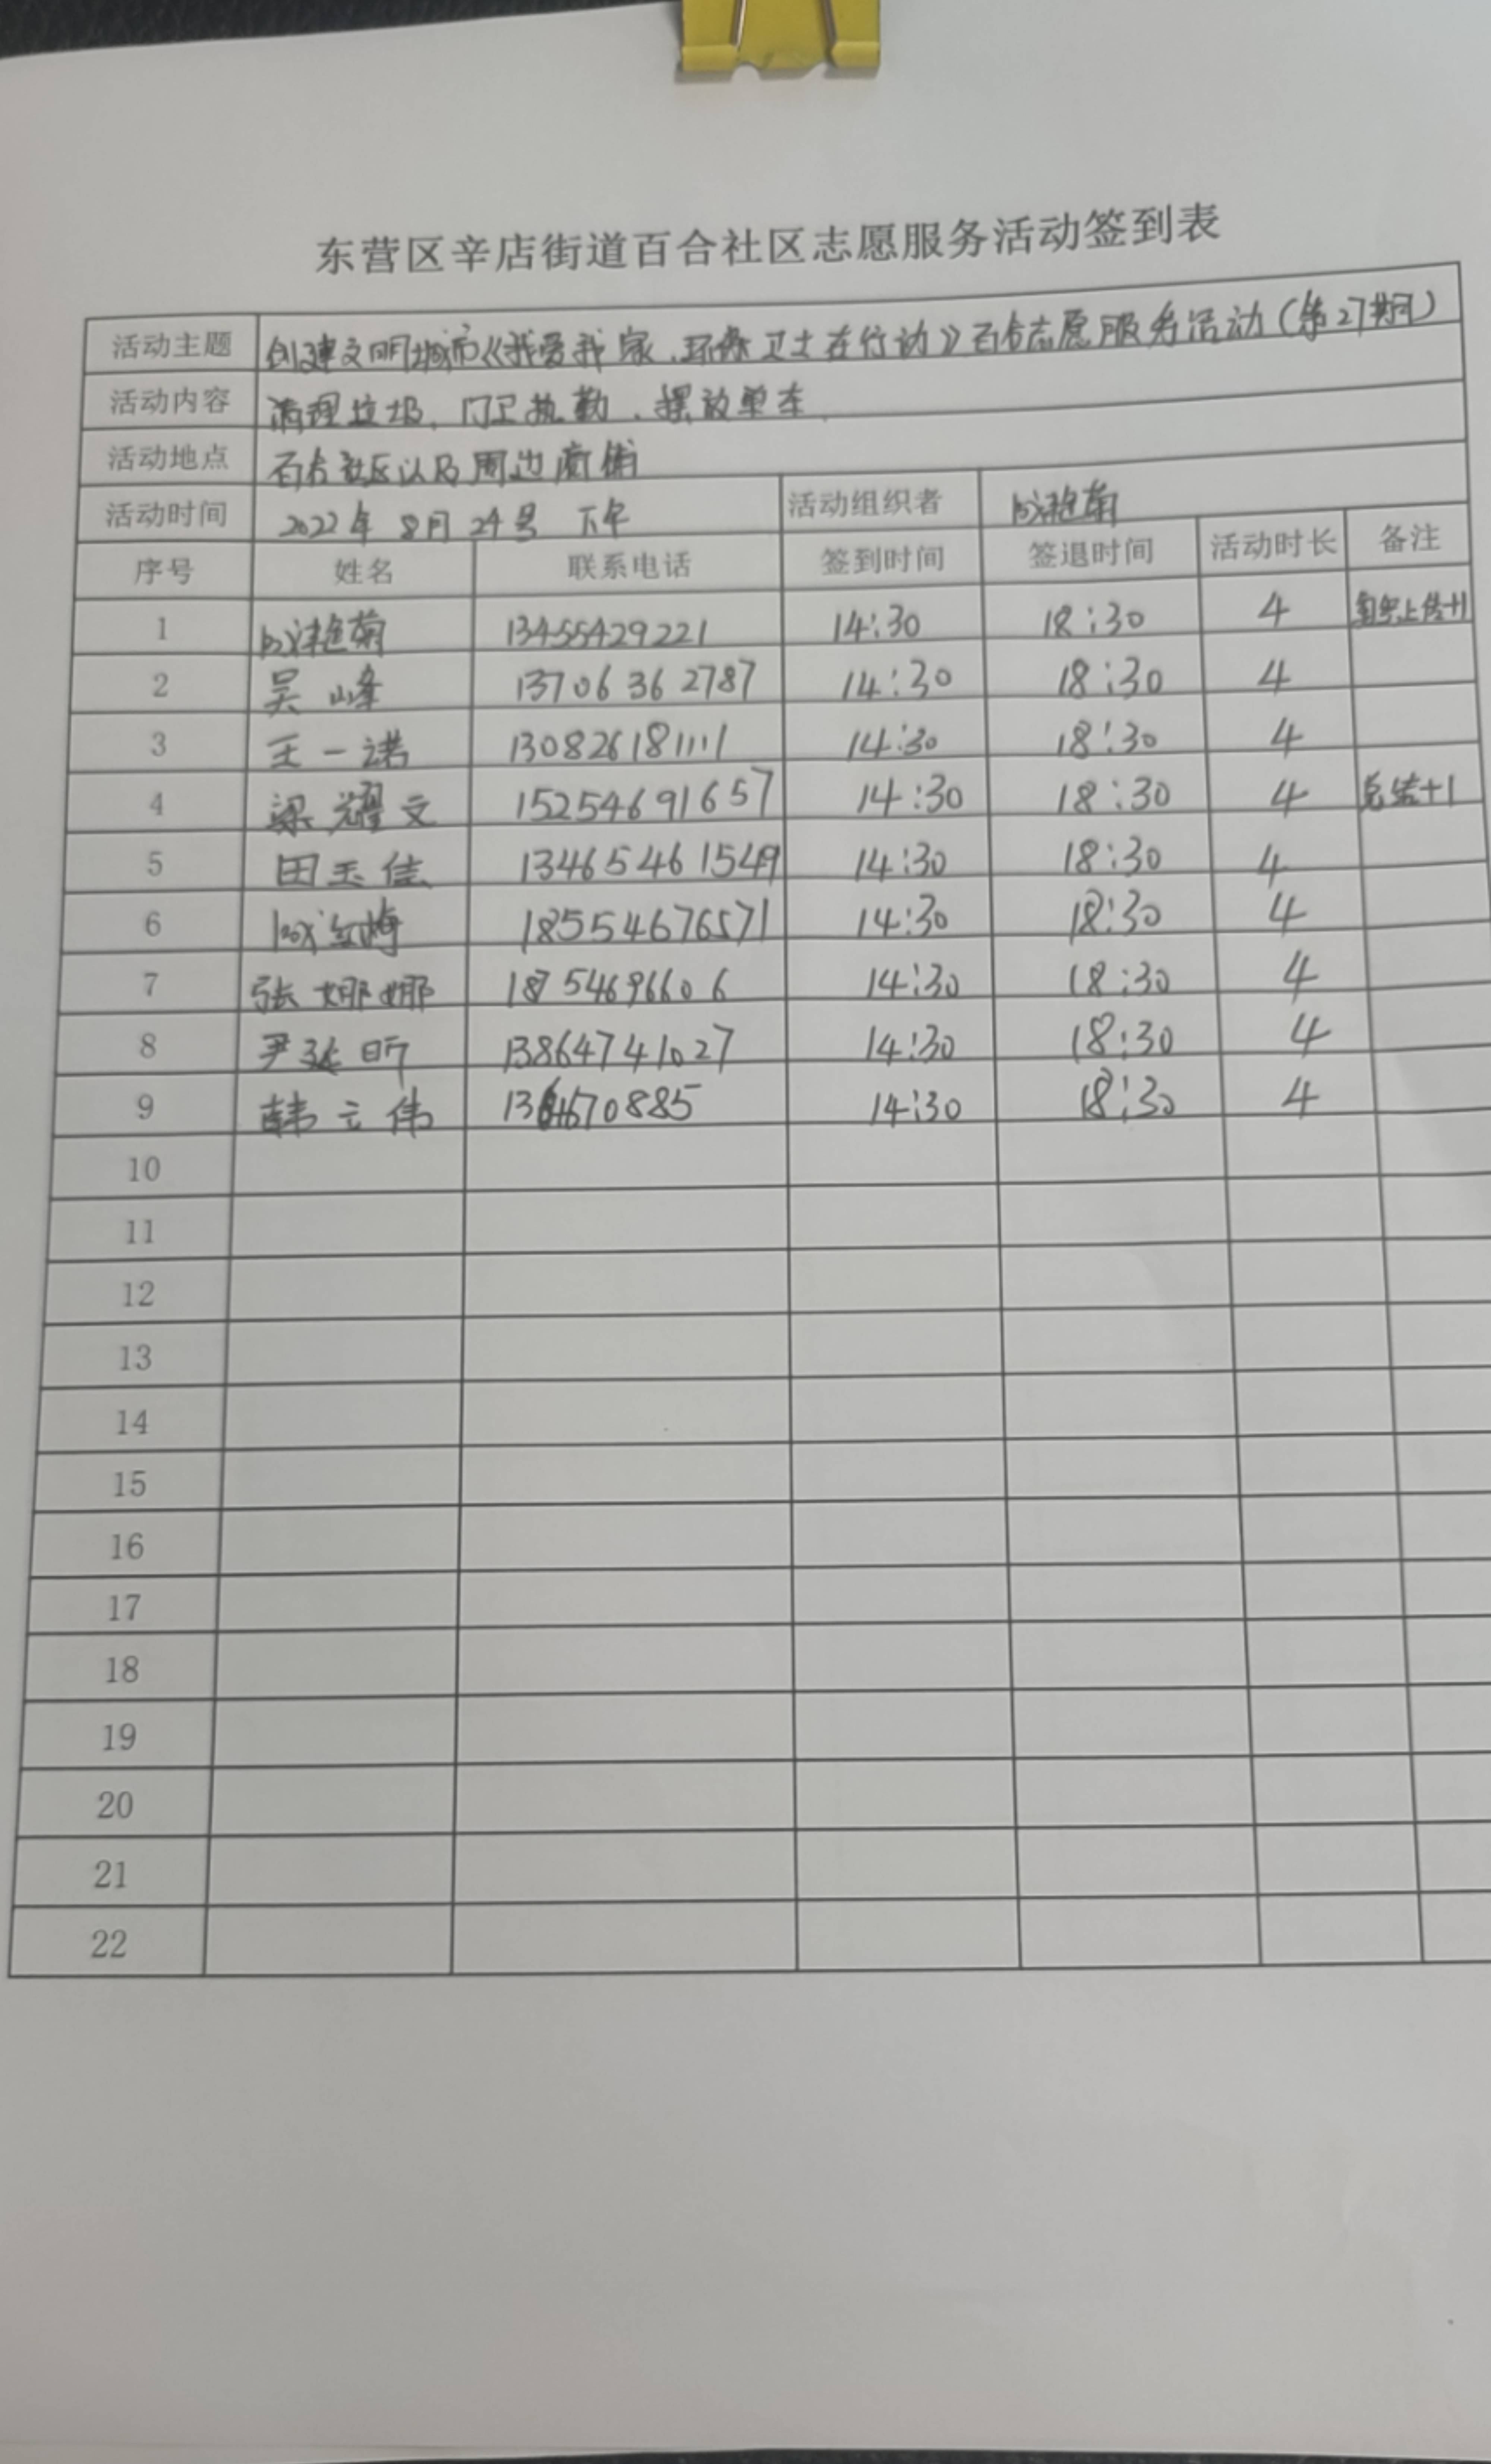 东营区辛店街道百合社区志愿服务活动签到表
活动主题 创建文明城市《我爱我家.环保卫士在行动》百合志愿服务活动(第27期)
活动内容 清理垃圾、门卫执勤、摆放单车
活动地点 百合社区以及周边商铺
活动时间 2022年 8月 24号 下午 活动组织者 艳菊
序号 姓名 联系电话 签到时间 签退时间 活动时长 备注
1 艳菊 13455429221 14:30 18:30 4 上传+1
2 吴峰 13706362787 14:30 18:30 4
3 王一诺 14:30 18:30 4
4 梁耀文 15254691657 14:30 18:30 4 总结+1
5 田玉佳 13465461549 14:30 18:30 4
6 红梅 18554676571 14:30 18:30 4
7 张娜娜 14:30 18:30 4
8 尹延昕 13864741027 14:30 18:30 4
9 韩立伟 14:30 18:30 4
10
11
12
13
14
15
16
17
18
19
20
21
22